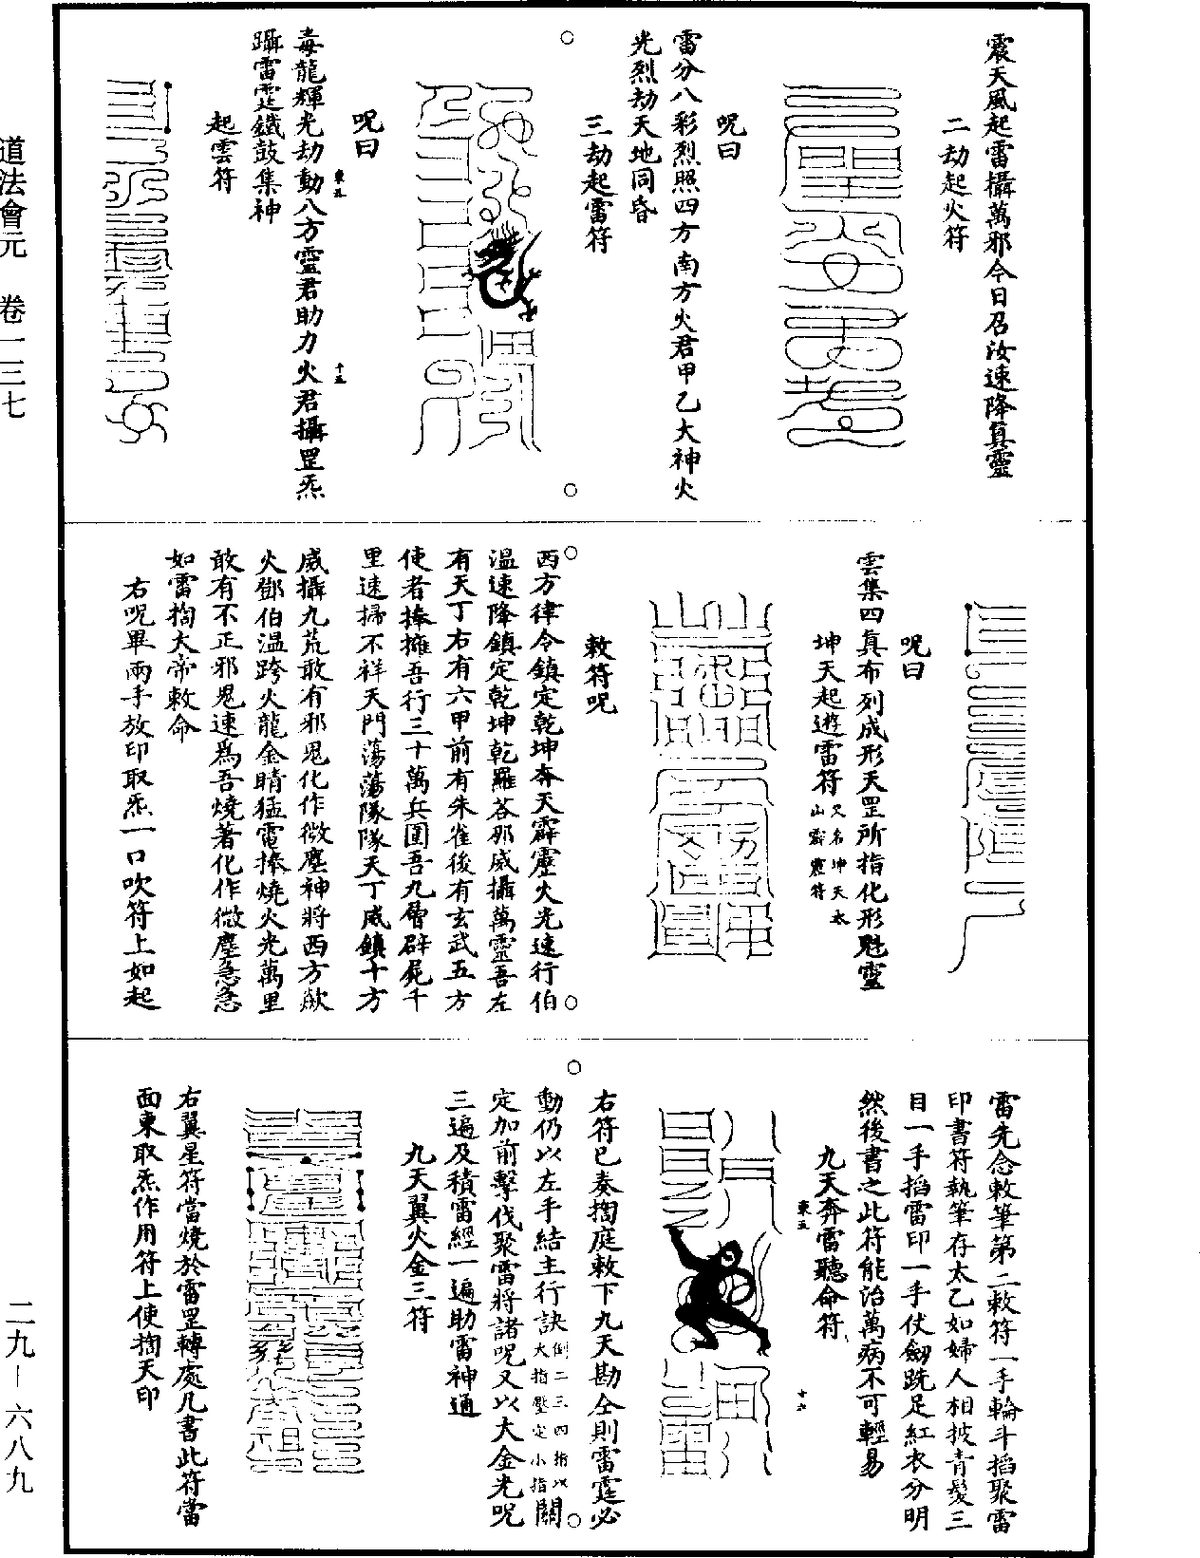 震天風起雷攝萬邪今日召汝速降真靈
二劫起火符
呪曰
雷分八彩烈照四方南方火君甲乙大神火
光烈劫天地同昏
三劫起雷符
呪曰
毒龍輝光劫動八方靈君助力火君攝罡炁
躡雷霆鐵鼓集神
起雲符
呪曰
雲集四真布列成形天罡所指化形魁靈
坤天起遊雷符又名坤天太山霹靂符
敕符呪
西方律令鎮定乾坤奔天霹靂火光速行伯
溫速降鎮定乾坤乾羅荅那威攝萬靈吾左
有天丁右有六甲前有朱雀後有玄武五方
使者捧擁吾行三十萬兵圍吾九層辟屍千
里速掃不祥天門蕩蕩隊隊天丁威鎮十方
威攝九荒敢有邪鬼化作微塵神將西方歘
火鄧伯溫跨火龍金睛猛電捧燒火光萬里
敢有不正邪鬼速爲吾燒著化作微塵急急
如雷掏大帝敕命
右呪畢兩手放印取炁一口吹符上如起
雷先念敕筆第二敕符一手輪斗搯聚雷
印書符執筆存太乙如婦人相披青髮三
目一手搯雷印一手仗劒跣足紅衣分明
然後書之此符能治萬病不可輕易
九天奔雷聽命符
右符已奏掏庭敕下九天勘仝則雷霆必
動仍以左手結主行訣倒二三四指以大指壓定小指關
定加前擊伐聚雷將諸呪又以大金光呪
三遍及積雷經一遍助雷神通
九天翼火金三符
右翼星符當燒於雷罡轉處凡書此符當
面東取炁作用符上使掏天印
東五
十五
東五
十六
道法會元 卷一三七
二九—六八九